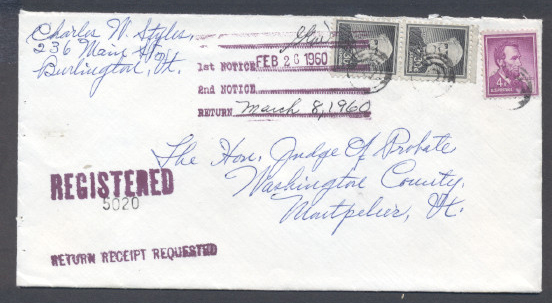 Charles W. Styles,
236 Main St.
Burlington, Vt.
1st NOTICE FEB 26 1960
2nd NOTICE
RETURN March 8, 1960
4¢
The Hon. Judge Of Probate
Washington County,
Montpelier, Vt.
REGISTERED
5020
RETURN RECEIPT REQUESTED